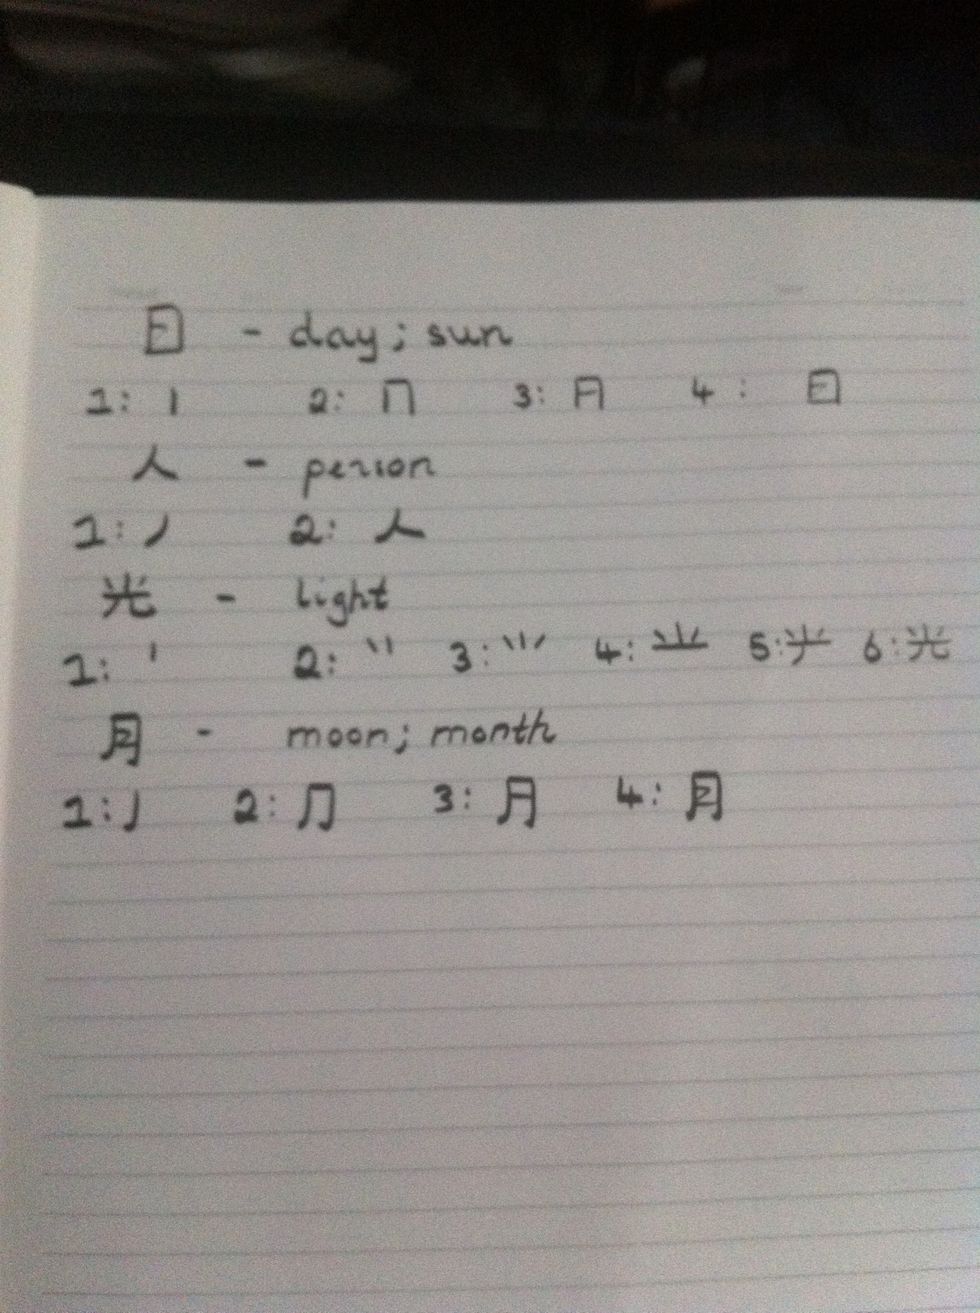 日 - day; sun
1: 丨 2: 冂 3: 月 4: 日
人 - person
1: 丿 2: 人
光 - light
1: 丨 2: 3: 4: 5: 6: 光
月 - moon; month
1: 丿 2: 冂 3: 月 4: 月